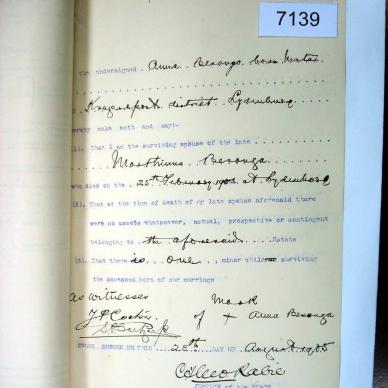 7139
the undersigned Anna Besonga born
district Lydenburg
hereby make oath and say:-
(1). That I am the surviving spouse of the late
Marthinus Besonga
who died on the 25th February 1902 at Lydenburg
(2). That at the time of death of my late spouse aforesaid there
were no assets whatsoever, actual, prospective or contingent
belonging to the aforesaid Estate
(3). That there is one minor child surviving
the deceased born of our marriage
as witnesses Mark
of + Anna Besonga
SWORN BEFORE ME THIS 28th DAY OF August 1905
Rabie
JUSTICE OF THE PEACE